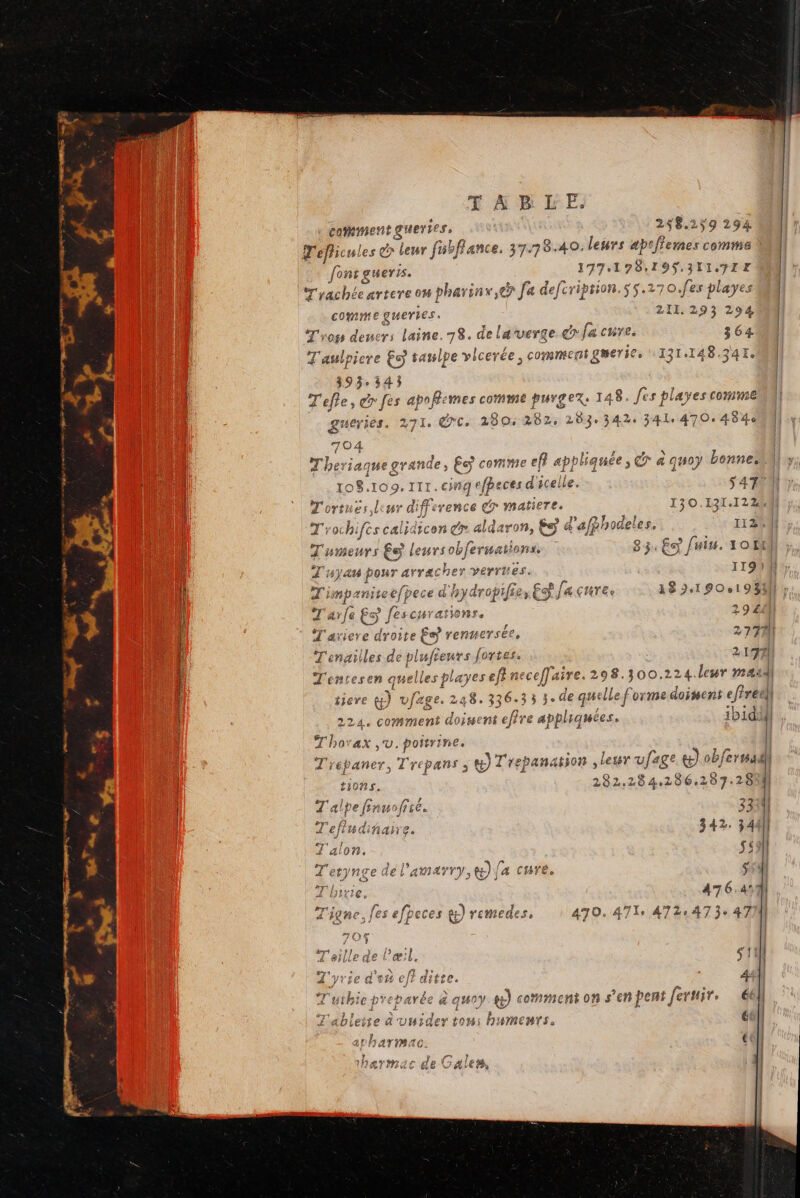 TABLE.
comment gueries. 258.259 294
Teſticules & leur ſubſtance. 37.78.40. leurs apoſtemes comme
ſont gueris. 177.178.195.311.711
Trachée artere ou pharinx, & ſa deſcription. 55.270. ſes playes
comme gueries. 211. 293 294
Trop deuers laine. 78. de la verge & ſa cure. 364
Taulpiere & taulpe vlcerée, comment guerie. 131.148.341.
393.343
Teſte, & ſes apoſtemes comme purgez. 148. ſes playes comme
gueries. 271. &c. 280. 282. 283. 342. 341. 470. 484.
704
Theriaque grande, & comme eſt appliquée, & à quoy bonne.
108.109.111. cinq eſpeces d'icelle. 547
Tortuës, leur difference & matiere. 130.131.122.
Trochiſcs calidicon & aldaron, & d'aſphodeles. 112.
Tumeurs & leurs obſeruations. 83. & ſuiu. 101
Tuyau pour arracher verruës. 119
Timpanite eſpece d'hydropiſie, & ſa cure. 189.190.193
Tarſe & ſes curations. 294
Tariere droite & renuersée. 277
Tenailles de pluſieurs ſortes. 217
Tentes en quelles playes eſt neceſſaire. 298.300.224. leur ma
tiere & vſage. 248.336.335. de quelle forme doiuent eſtre
224. comment doiuent eſtre appliquées. ibid
Thorax, v. poitrine.
Trepaner, Trepans, & Trepanation, leur vſage & obſerua
tions. 282.284.286.287.28
Talpe ſinuoſité. 33
Teſtudinaire. 342. 344
Talon. 559
Tetynge de l'amarry, & ſa cure.
Thirie. 476.
Tigne, ſes eſpeces & remedes. 470. 471. 472. 473. 47
705
Taille de l'œil. 51
Tyrie d'où eſt ditte. 4
Tuthie preparée à quoy & comment on s'en peut ſeruir. 66
Tablette à vuider tous humeurs. 6
apharmac.
pharmac de Galen,